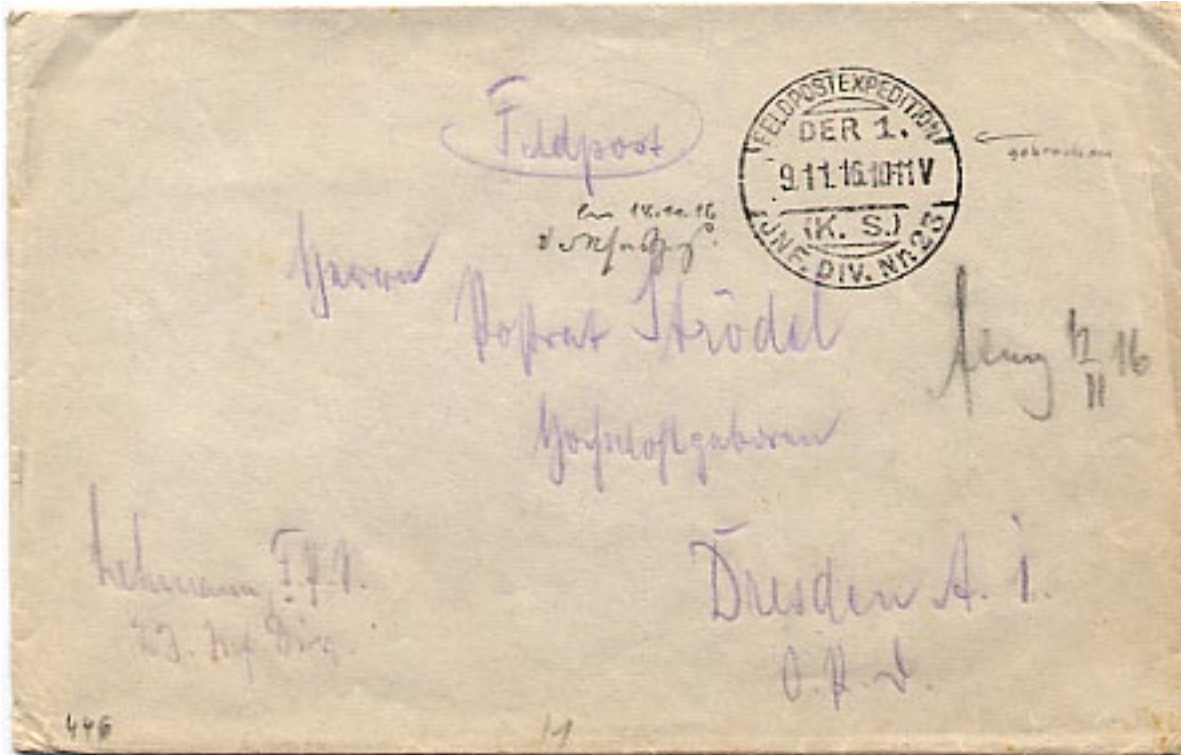 Feldpost
FELDPOSTEXPEDITION
DER 1.
9.11.16.10-11 V
(K. S.)
JNF. DIV. Nr. 23
Herrn
Postrat Strödel
Hochwohlgeboren
Dresden A. 1.
O. P. D.
Lehmann, F. P. S.
23. Inf. Div.
446